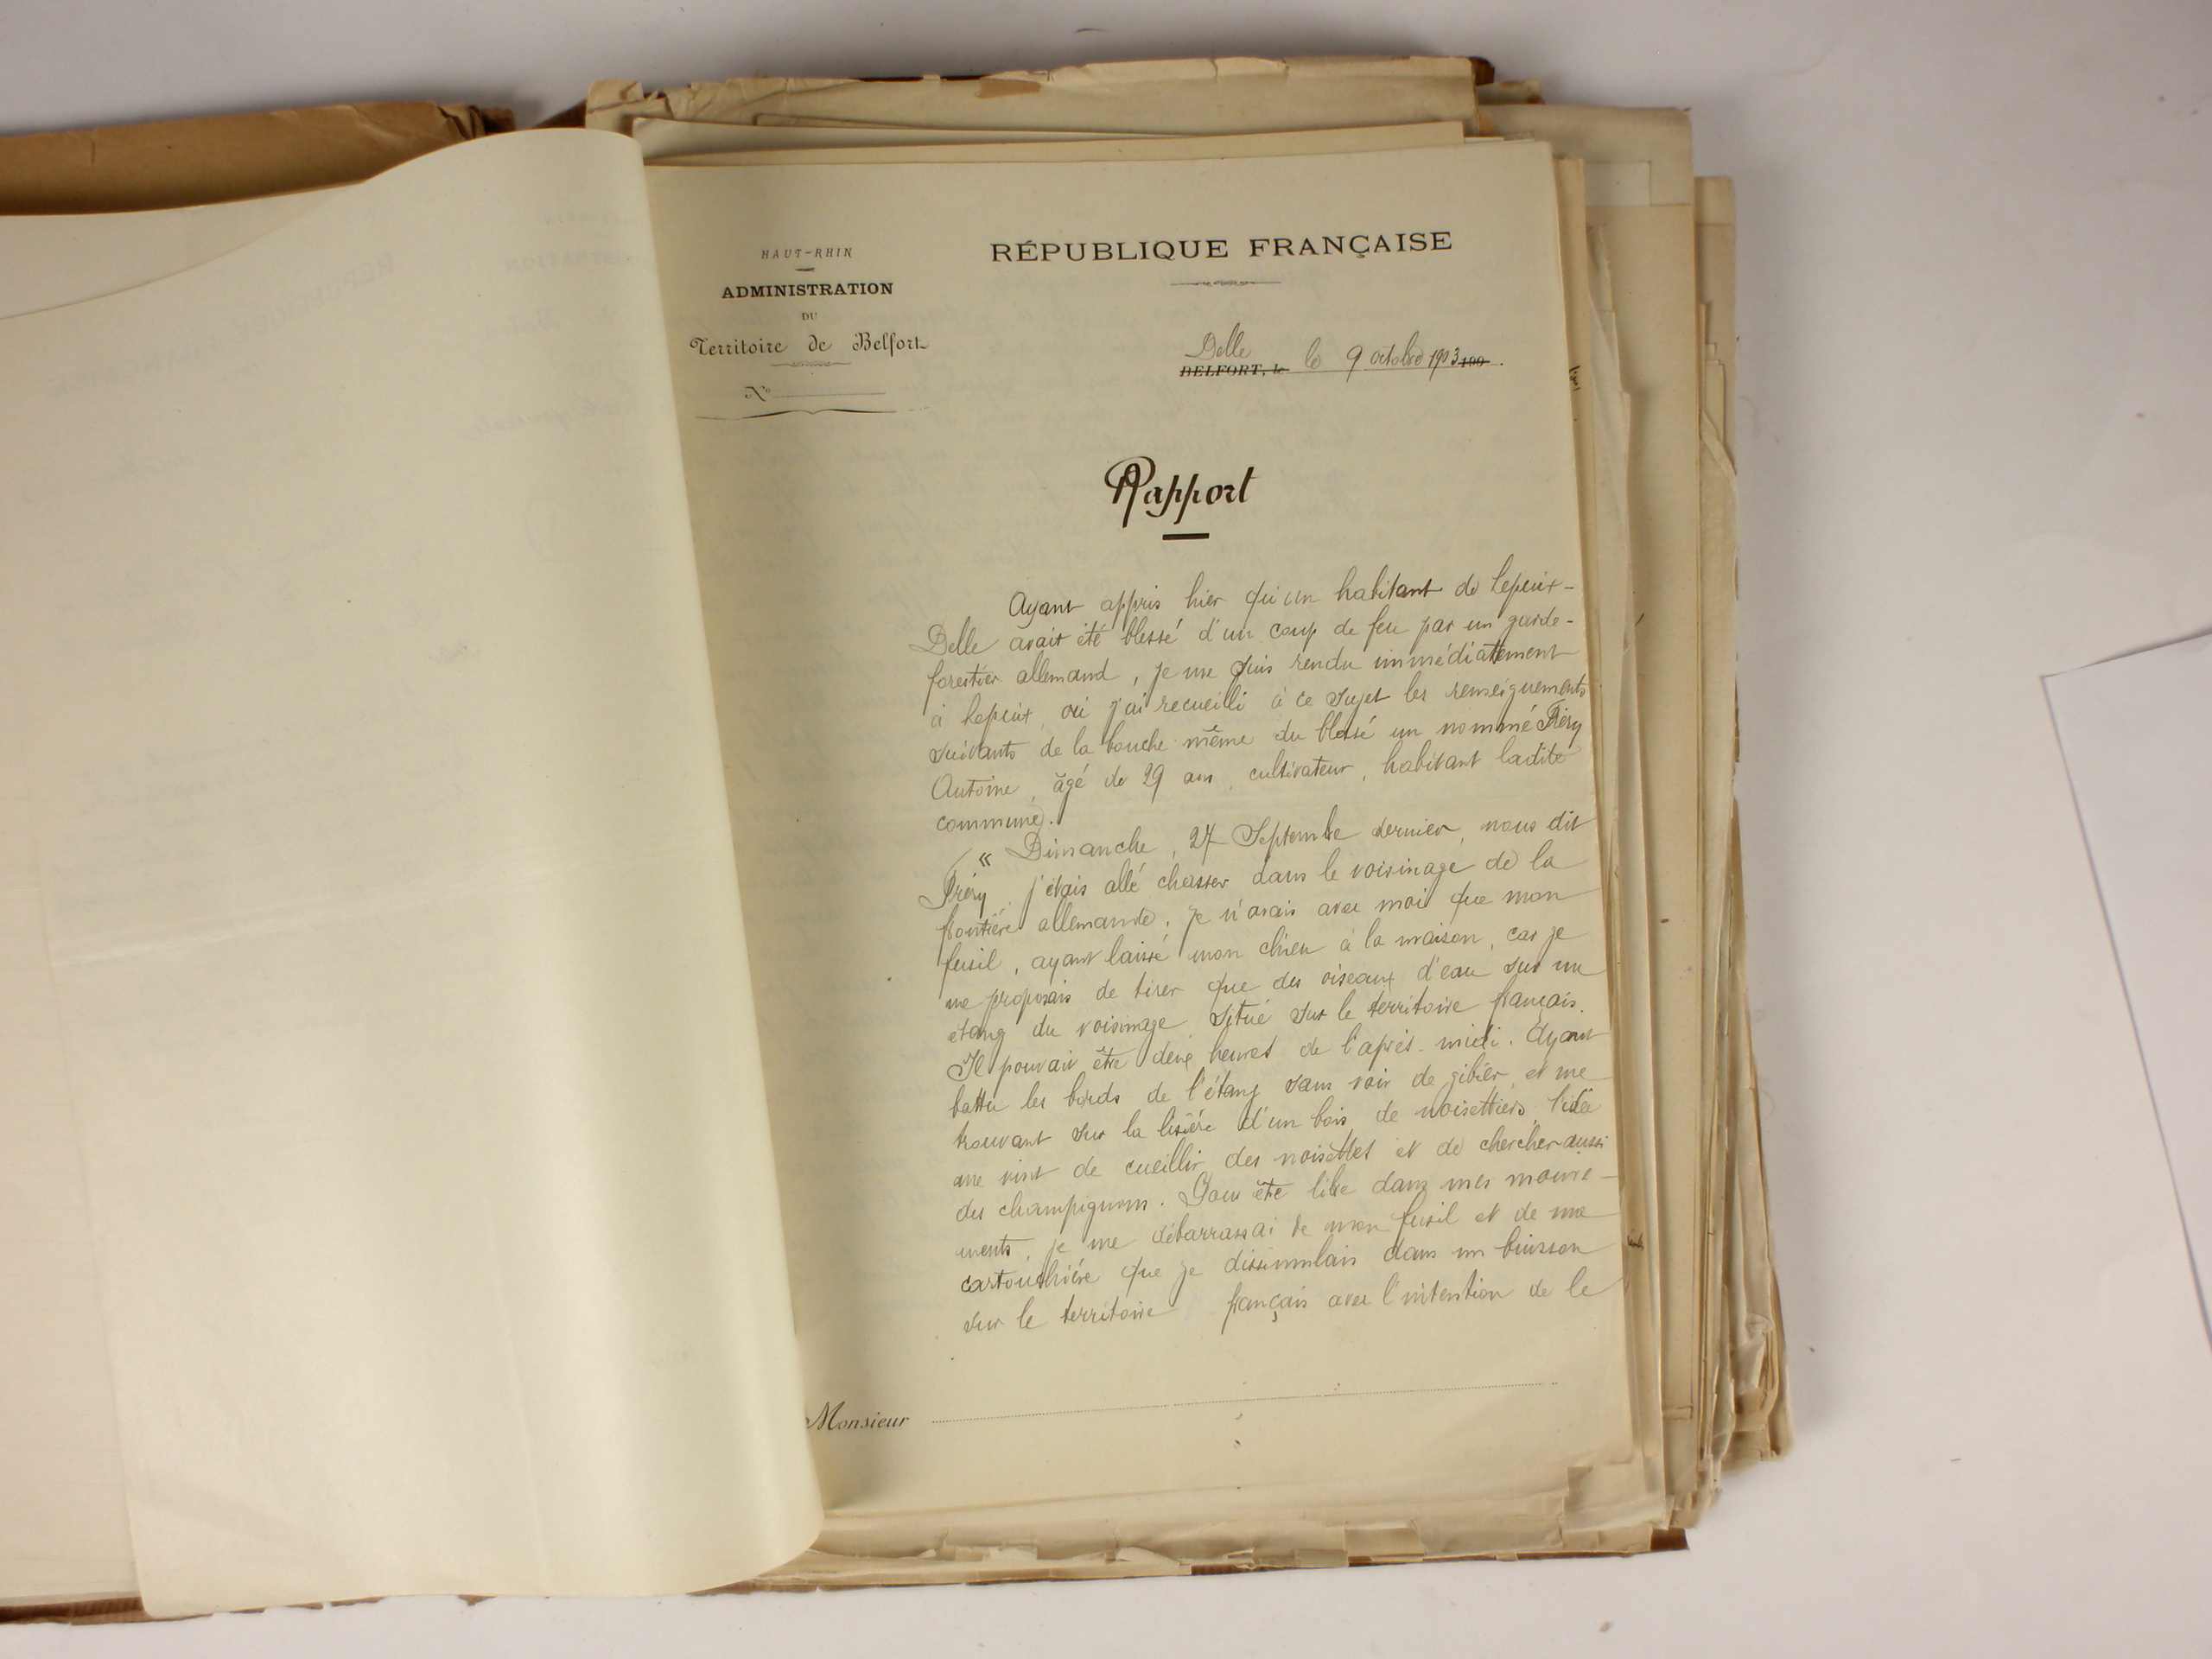 HAUT-RHIN
ADMINISTRATION
DU
Territoire de Belfort
N°
RÉPUBLIQUE FRANÇAISE
Delle
BELFORT, le le 9 octobre 1903 190 .
Rapport
Ayant appris hier qu'un habitant de Lepuix-
Delle avait été blessé d'un coup de feu par un garde-
forestier allemand, je me suis rendu immédiatement
à Lepuix, où j'ai recueilli à ce sujet les renseignements
suivants de la bouche même du blessé un nommé Fréry
Antoine, âgé de 29 ans, cultivateur, habitant ladite
commune.
« Dimanche, 27 Septembre dernier, nous dit
Fréry, j'étais allé chasser dans le voisinage de la
frontière allemande, je n'avais avec moi que mon
fusil, ayant laissé mon chien à la maison, car je
me proposais de tirer que des oiseaux d'eau sur un
étang du voisinage situé sur le territoire français.
Il pouvait être deux heures de l'après-midi. Ayant
battu les bords de l'étang sans voir de gibier, et me
trouvant sur la lisière d'un bois de noisettiers, l'idée
me vint de cueillir des noisettes et de chercher aussi
des champignons. Pour être libre dans mes mouve-
ments, je me débarrassai de mon fusil et de ma
cartouchière que je dissimulais dans un buisson
sur le territoire français avec l'intention de le
Monsieur